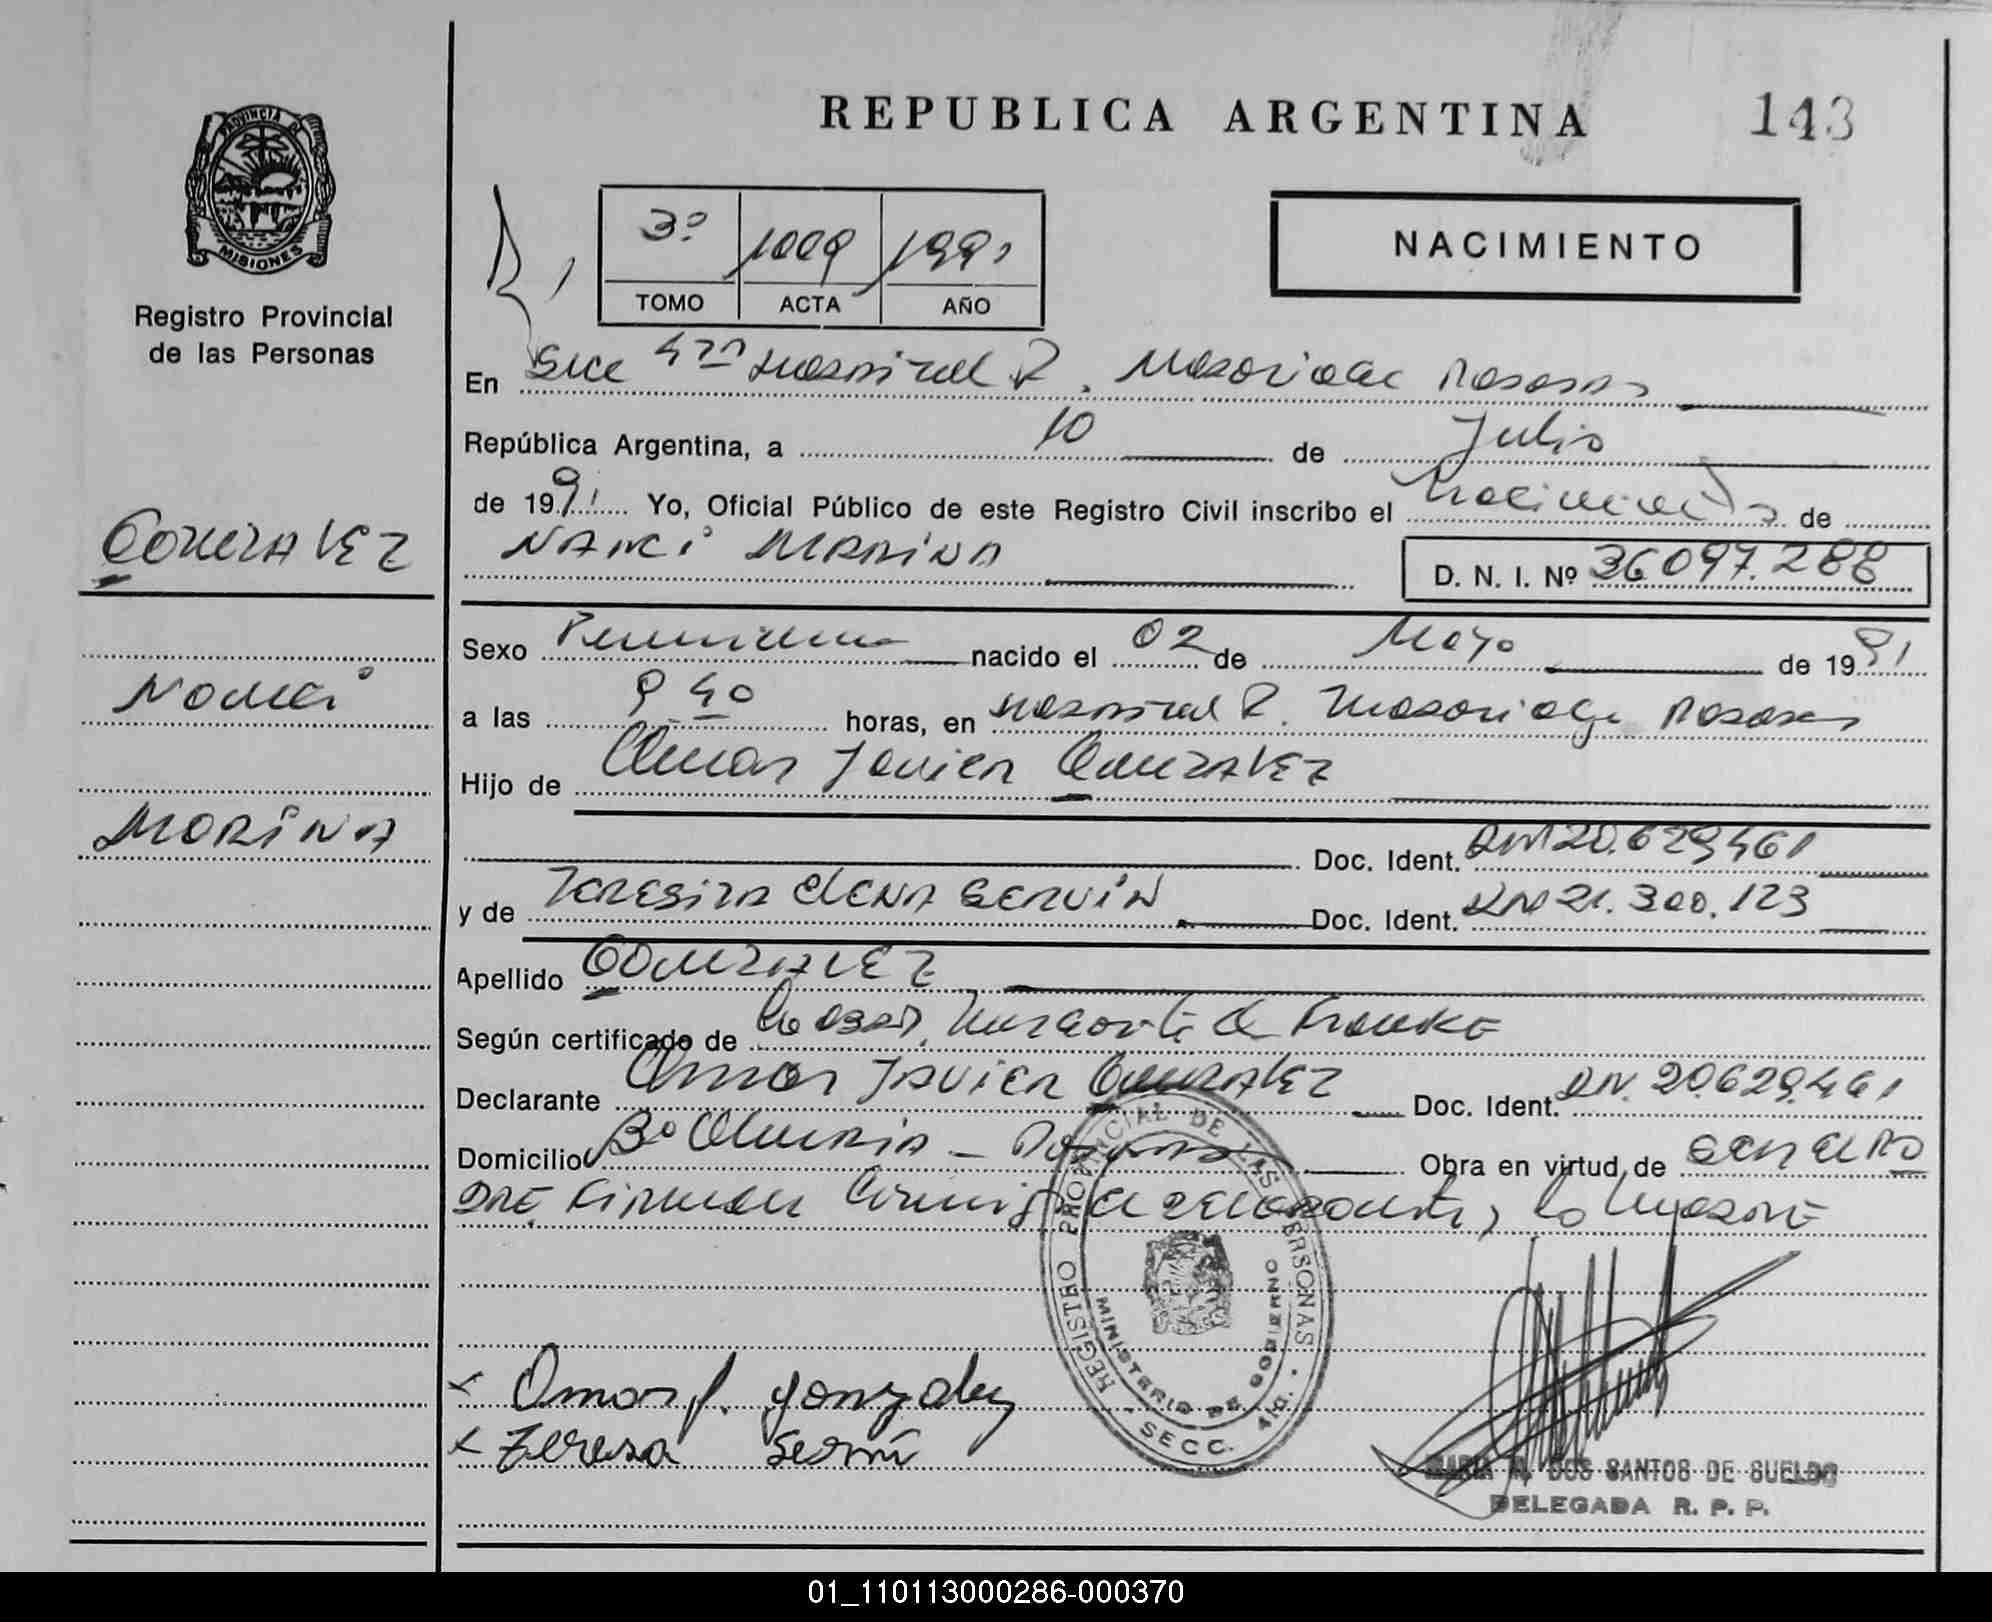 REPUBLICA ARGENTINA 143
PROVINCIA D MISIONES
Registro Provincial
de las Personas
3º 1009 1991
TOMO ACTA AÑO
NACIMIENTO
En Secc 4ta Hospital R. Madariaga Posadas
República Argentina, a 10 de Julio
de 1991 Yo, Oficial Público de este Registro Civil inscribo el Nacimiento de
NANCI MARINA D. N. I. Nº 36097.288
GONZALEZ
NANCI
MARINA
Sexo Femenino nacido el 02 de Mayo de 1991
a las 9 40 horas, en Hospital R. Madariaga Posadas
Hijo de Omar Javier GONZALEZ
Doc. Ident. DNI 20.629461
y de TERESITA ELENA SERVIN Doc. Ident. DNI 21.300.123
Apellido GONZALEZ
Según certificado de Margarita FRANKE
Declarante Omar JAVIER GONZALEZ Doc. Ident. DNI. 20.629.461
Domicilio Bº Posadas Obra en virtud de
Firman
Omar J. Gonzalez
Teresa Servin
REGISTRO PROVINCIAL DE LAS PERSONAS
MINISTERIO DE GOBIERNO
SECC. 4ta.
MARIA DOS SANTOS DE SUELDO
DELEGADA R. P. P.
01_110113000286-000370